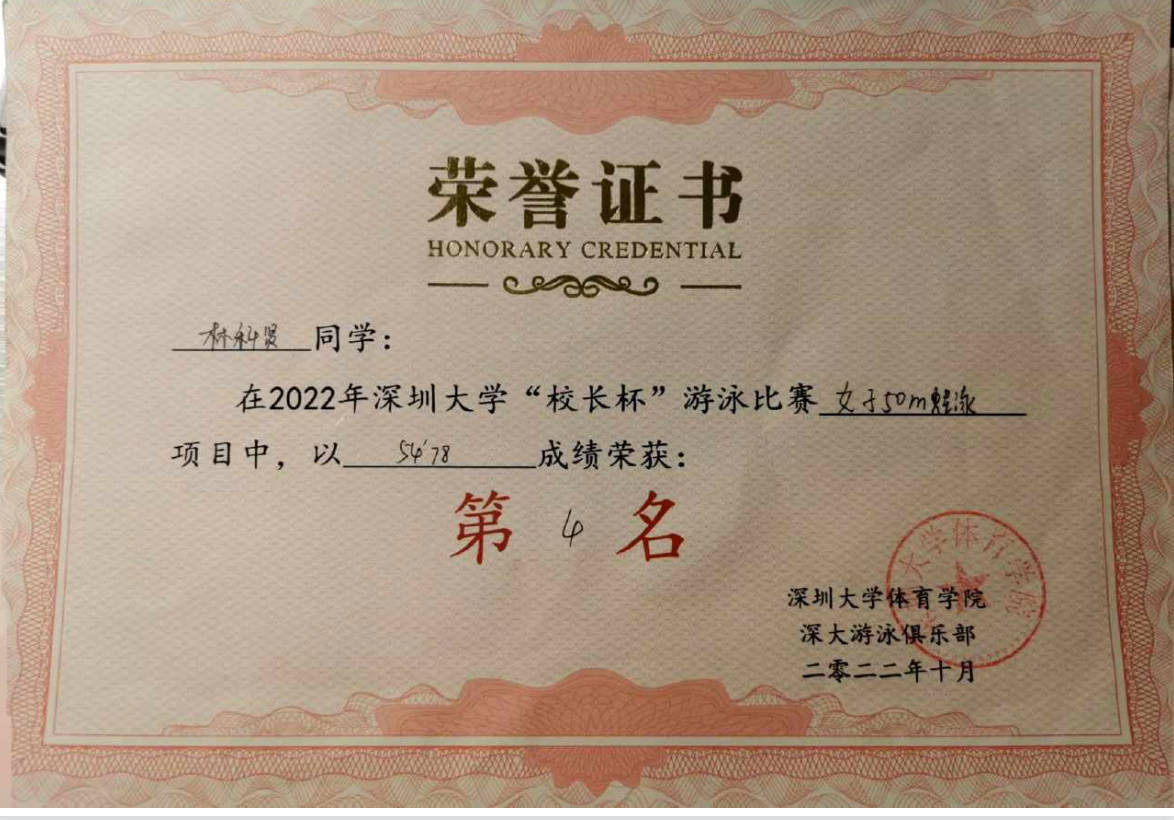 荣誉证书
HONORARY CREDENTIAL
林科贤同学：
在2022年深圳大学“校长杯”游泳比赛女子50m蛙泳
项目中，以54'78成绩荣获：
第4名
大学体育学院
深圳大学体育学院
深大游泳俱乐部
二零二二年十月